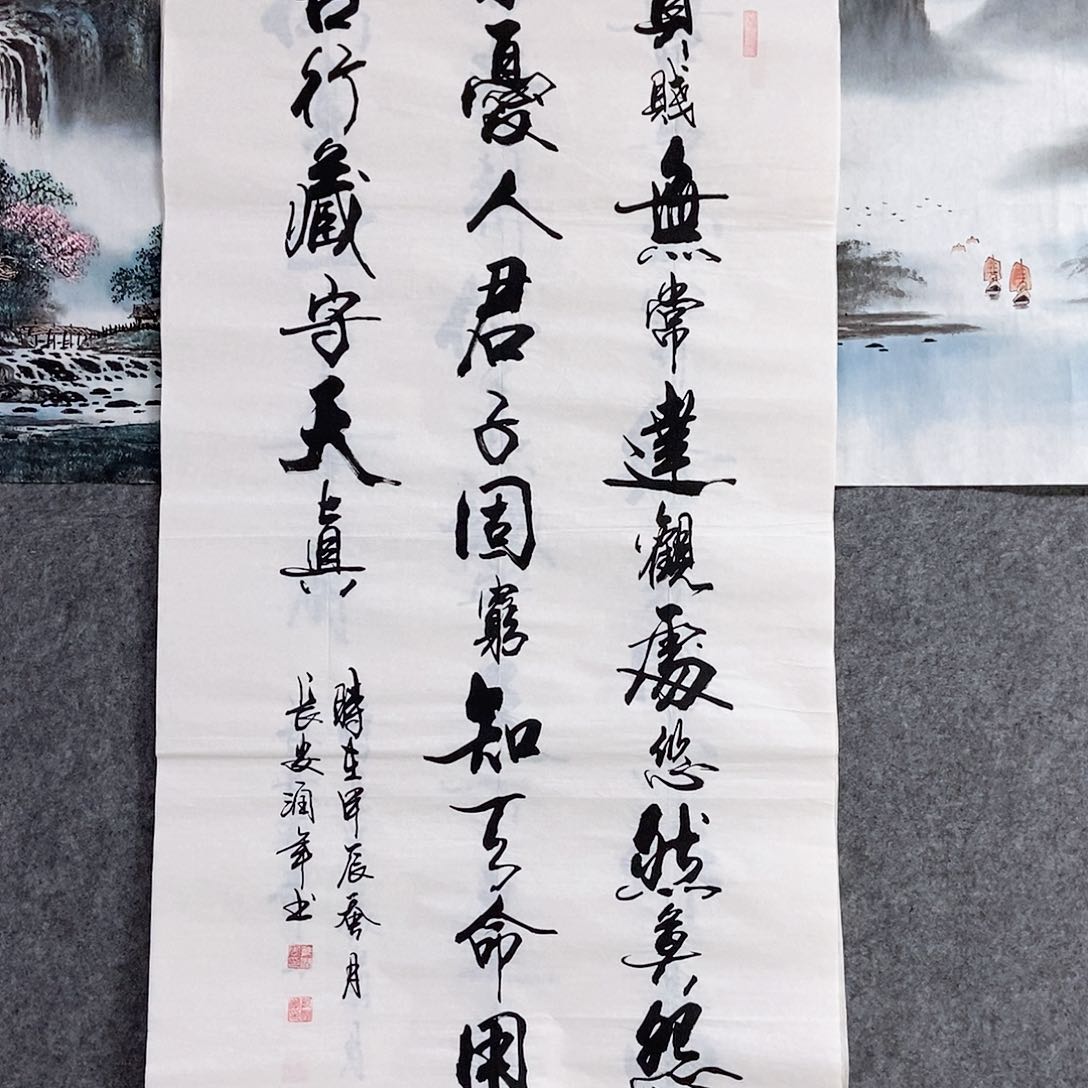 賤無常達觀處悠然莫怨
憂人君子固窮知天命用
行藏守天真
時在甲辰蚕月
長安潤年书